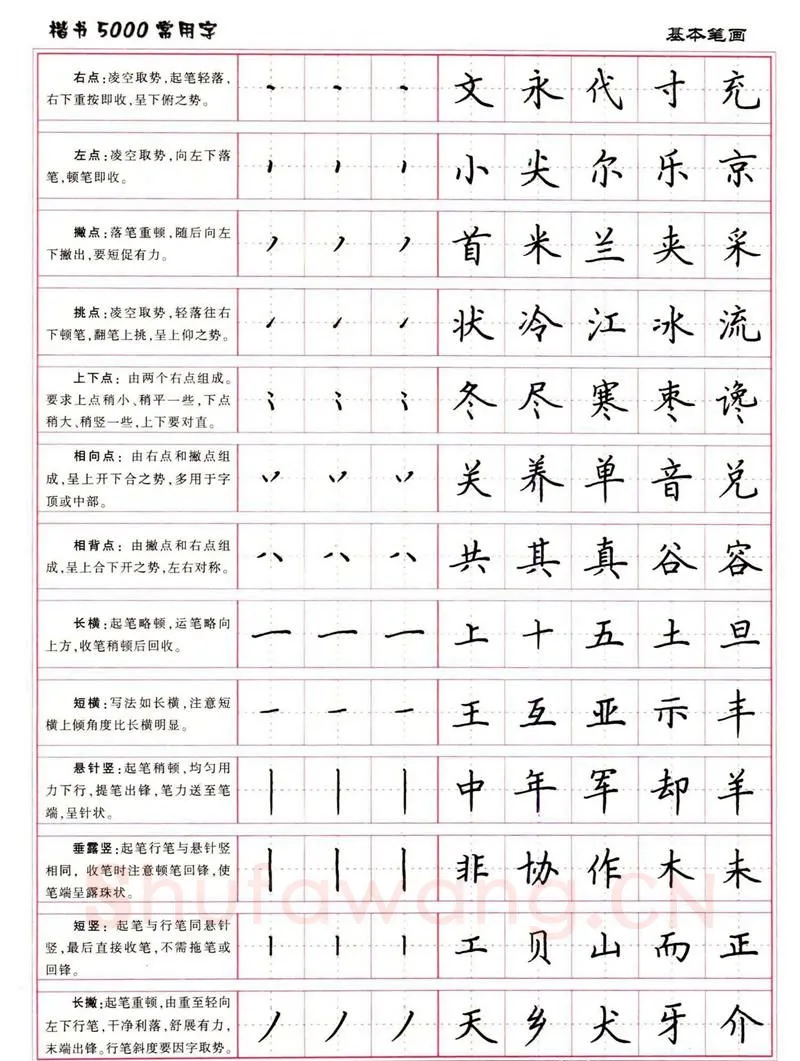 楷书5000常用字
基本笔画
右点：凌空取势，起笔轻落，
右下重按即收，呈下俯之势。
文 永 代 寸 充
左点：凌空取势，向左下落
笔，顿笔即收。
小 尖 尔 乐 京
撇点：落笔重顿，随后向左
下撇出，要短促有力。
首 米 兰 夹 采
挑点：凌空取势，轻落往右
下顿笔，翻笔上挑，呈上仰之势。
状 冷 江 冰 流
上下点：由两个右点组成。
要求上点稍小、稍平一些，下点
稍大、稍竖一些，上下要对直。
冬 尽 寒 枣 谗
相向点：由右点和撇点组
成，呈上开下合之势，多用于字
顶或中部。
关 养 单 音 兑
相背点：由撇点和右点组
成，呈上合下开之势，左右对称。
共 其 真 谷 容
长横：起笔略顿，运笔略向
上方，收笔稍顿后回收。
上 十 五 土 旦
短横：写法如长横，注意短
横上倾角度比长横明显。
王 互 亚 示 丰
悬针竖：起笔稍顿，均匀用
力下行，提笔出锋，笔力送至笔
端，呈针状。
中 年 军 却 羊
垂露竖：起笔行笔与悬针竖
相同，收笔时注意顿笔回锋，使
笔端呈露珠状。
非 协 作 木 未
短竖：起笔与行笔同悬针
竖，最后直接收笔，不需拖笔或
回锋。
工 贝 山 而 正
长撇：起笔重顿，由重至轻向
左下行笔，干净利落，舒展有力，
末端出锋。行笔斜度要因字取势。
天 乡 犬 牙 介
Shufawang.CN